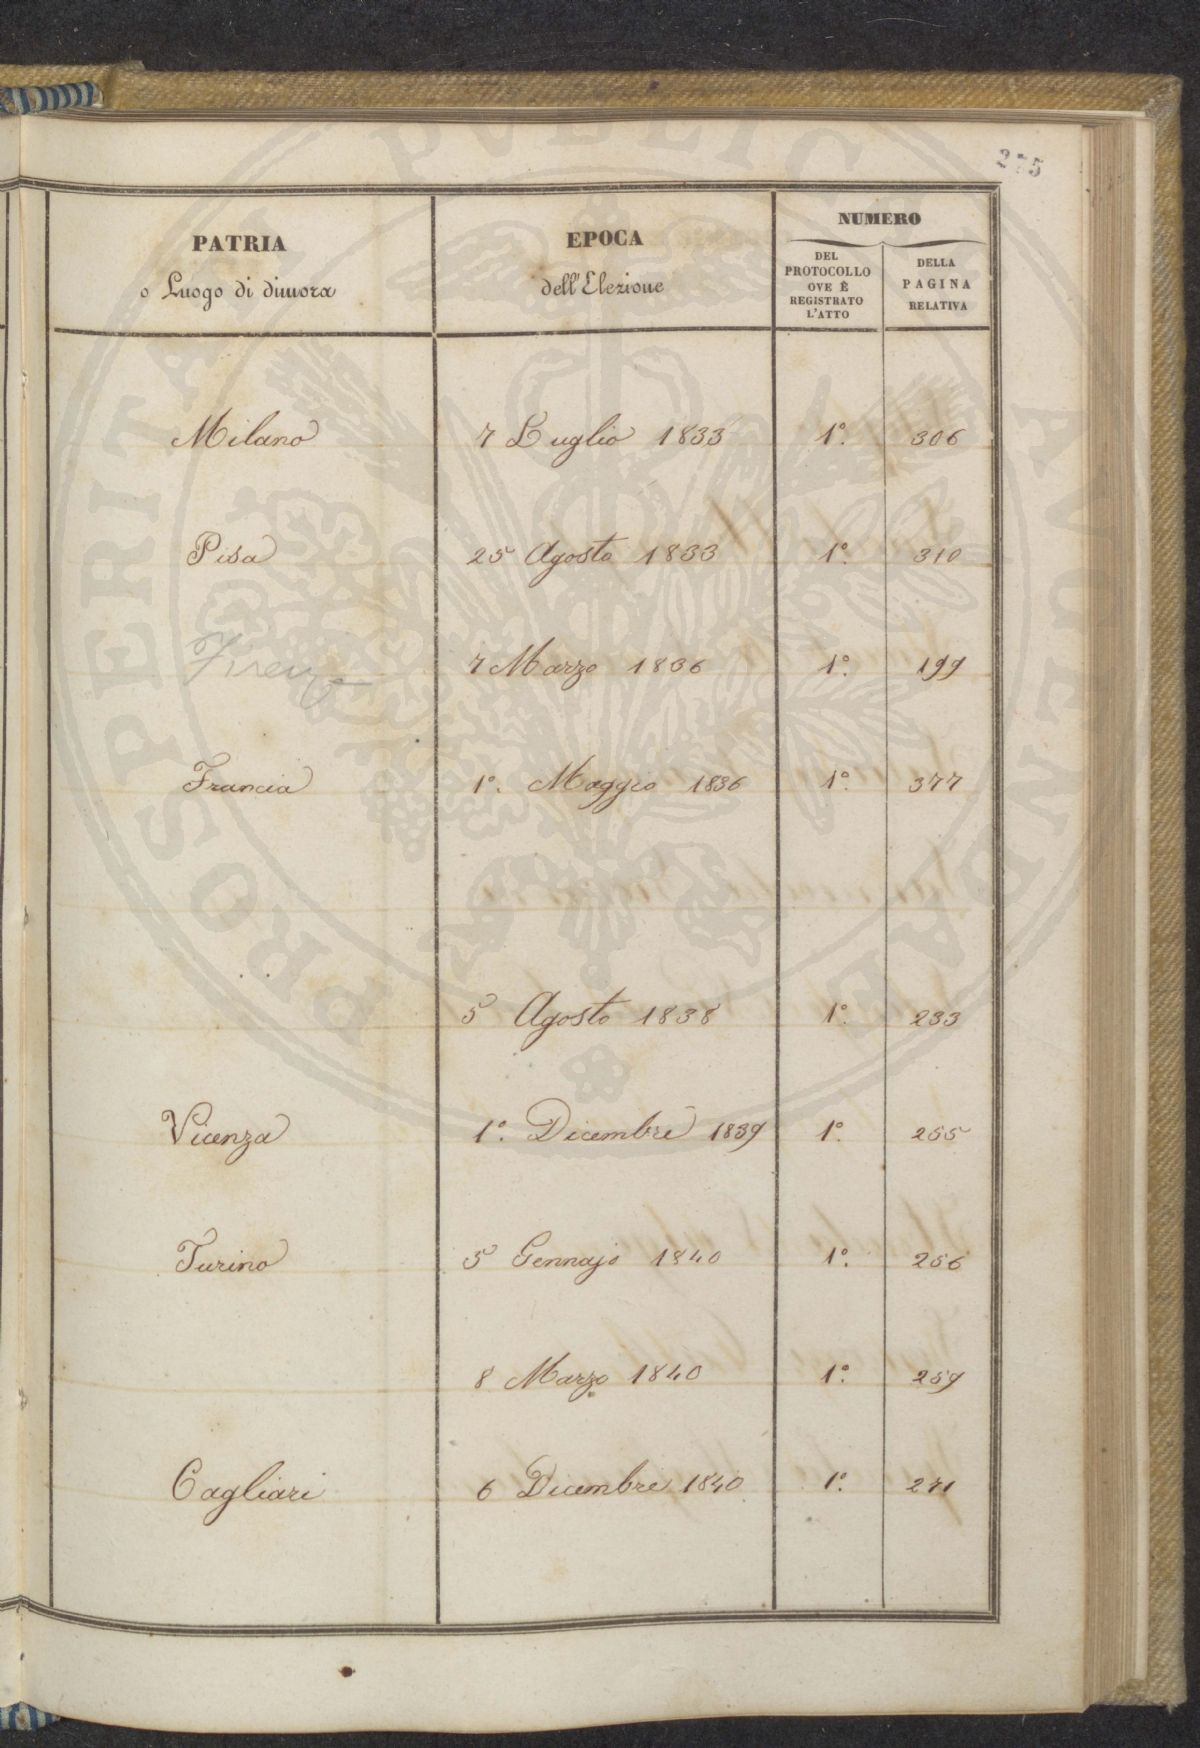 PROSPERITATI PVBLICAE AVGENDAE
275
PATRIA
o Luogo di dimora
EPOCA
dell'Elezione
NUMERO
DEL
PROTOCOLLO
OVE È
REGISTRATO
L'ATTO
DELLA
PAGINA
RELATIVA
Milano 7 Luglio 1833 1º. 306
Pisa 25 Agosto 1833 1º. 310
Firenze 7 Marzo 1836 1º. 199
Francia 1º. Maggio 1836 1º. 377
5 Agosto 1838 1º. 233
Vicenza 1º. Dicembre 1839 1º. 255
Turino 5 Gennajo 1840 1º. 256
8 Marzo 1840 1º. 259
Cagliari 6 Dicembre 1840 1º. 271